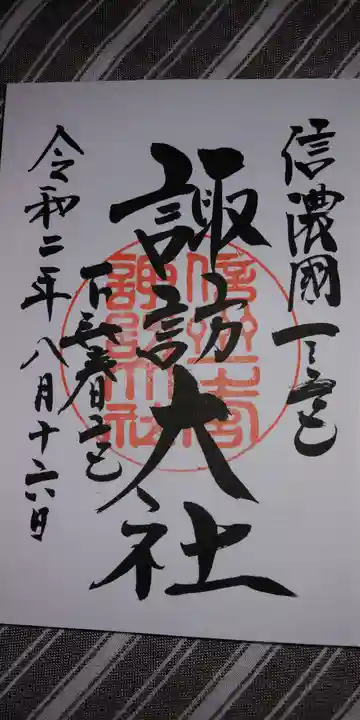 信濃國一之宮
諏訪大社
下社春宮
令和二年八月十六日